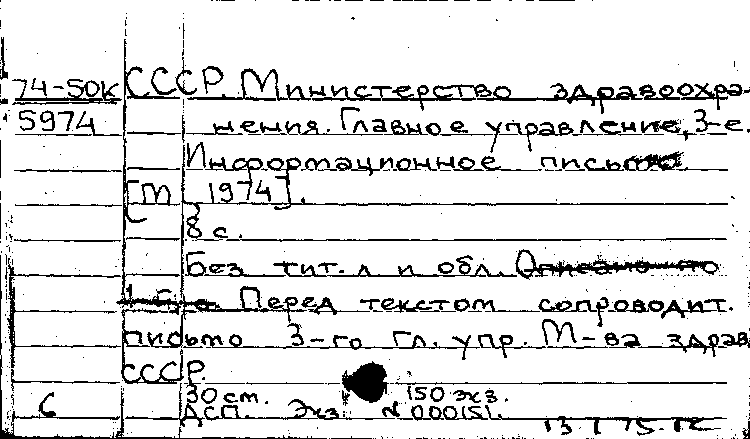 74-50к СССР. Министерство здравоохра-
5974 нения. Главное управление, 3-е.
Информационное письмо
[М 1974].
8 с.
Без тит. л и обл. Описано по
1-ой с. Перед текстом сопроводит.
письмо 3-го гл. упр. М-ва здрав
СССР.
30 см. 150 экз.
6 ДСП. Экз. № 000151.